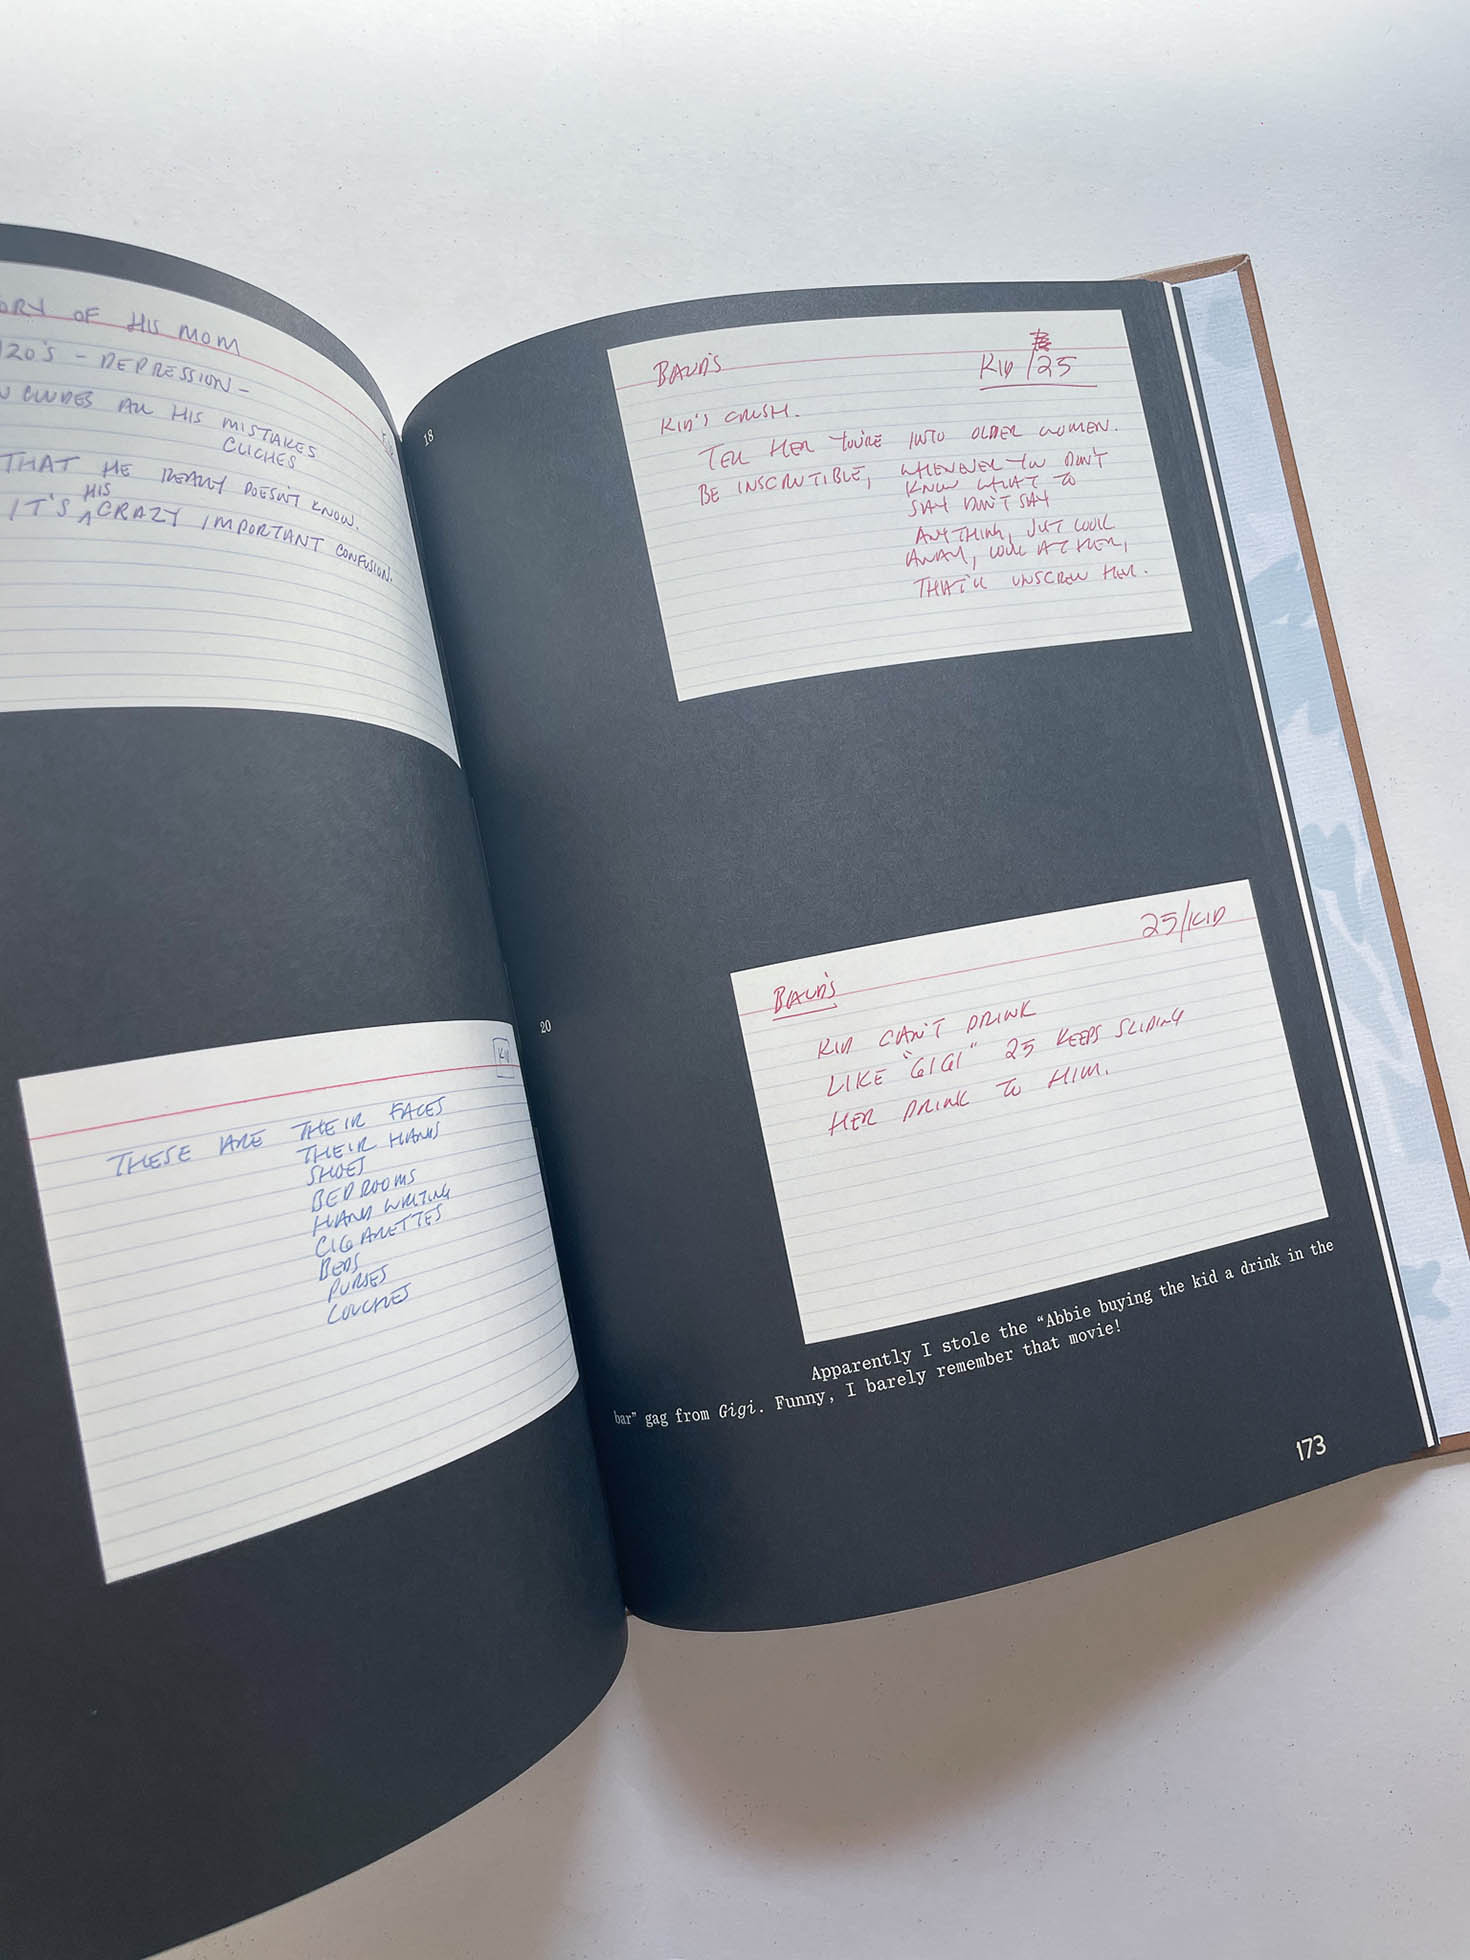 ORY OF HIS MOM
120'S - DEPRESSION -
CLUDES ALL HIS MISTAKES
CLICHES
THAT HE REALLY DOESN'T KNOW.
IT'S HIS CRAZY IMPORTANT CONFUSION.
KID
THESE ARE THEIR FACES
THEIR HANDS
SHOES
BEDROOMS
HAND WRITING
CIGARETTES
BEDS
PURSES
COUCHES
18
BAUD'S
KID/25
KID'S CRUSH.
TELL HER YOU'RE INTO OLDER WOMEN.
BE INSCRUTIBLE, WHENEVER YOU DON'T
KNOW WHAT TO
SAY DON'T SAY
ANYTHING, JUST LOOK
AWAY, LOOK AT HER,
THAT'LL UNSCREW HER.
20
25/KID
BAUD'S
KID CAN'T DRINK
LIKE "GIGI" 25 KEEPS SLIDING
HER DRINK TO HIM.
Apparently I stole the "Abbie buying the kid a drink in the
bar" gag from Gigi. Funny, I barely remember that movie!
173